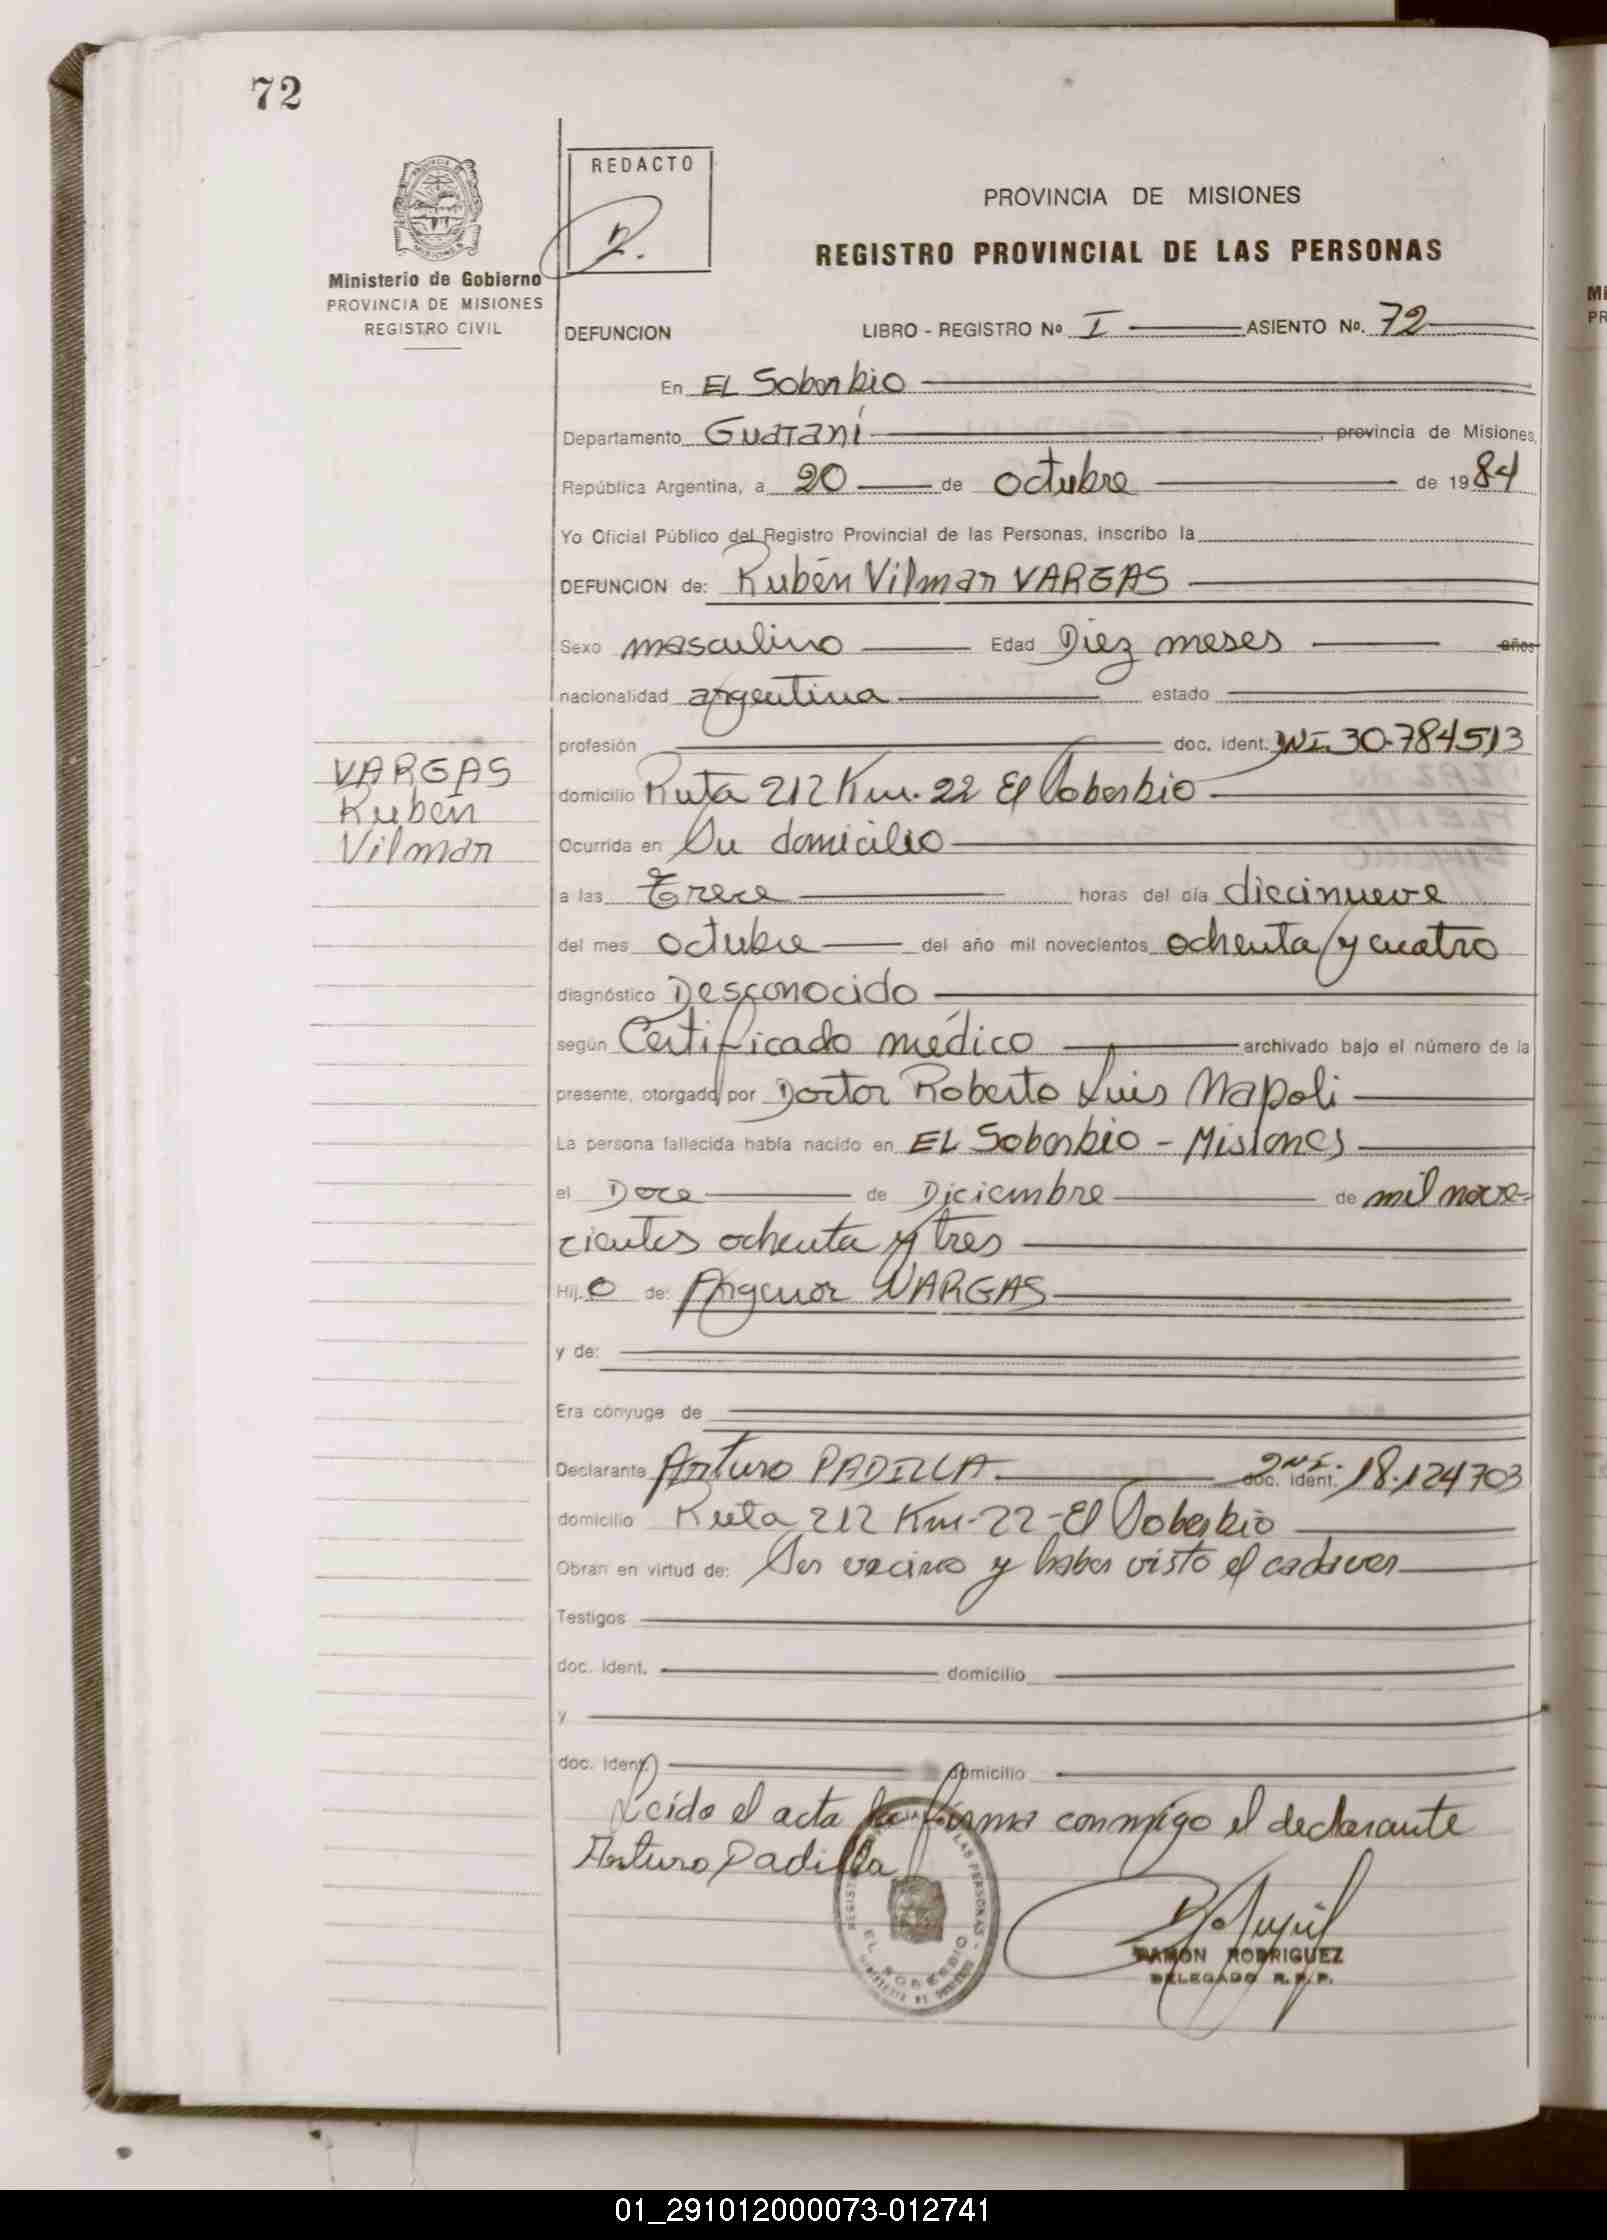 72
REDACTO
PROVINCIA DE MISIONES
REGISTRO PROVINCIAL DE LAS PERSONAS
Ministerio de Gobierno
PROVINCIA DE MISIONES
REGISTRO CIVIL
DEFUNCION LIBRO - REGISTRO Nº I ASIENTO No. 72
En EL Soberbio
Departamento Guaraní, provincia de Misiones,
República Argentina, a 20 de octubre de 1984
Yo Oficial Público del Registro Provincial de las Personas, inscribo la
DEFUNCION de: Rubén Vilmar VARGAS
Sexo masculino Edad Diez meses años
nacionalidad argentina estado
profesión doc. ident. DNI. 30.784513
VARGAS
Rubén
Vilmar
domicilio Ruta 212 Km. 22 El Soberbio
Ocurrida en Su domicilio
a las Trece horas del día diecinueve
del mes octubre del año mil novecientos ochenta y cuatro
diagnóstico Desconocido
según Certificado médico archivado bajo el número de la
presente, otorgado por Doctor Roberto Luis Napoli
La persona fallecida había nacido en EL Soberbio - Misiones
el Doce de Diciembre de mil nove-
cientos ochenta y tres
Hij o de: Argenor VARGAS
y de:
Era cónyuge de
Declarante Arturo PADILLA doc. ident. DNI. 18.124703
domicilio Ruta 212 Km-22-El Soberbio
Obran en virtud de: Ser vecino y haber visto el cadaver
Testigos
doc. ident. domicilio
y
doc. ident. domicilio
Leído el acta la firma conmigo el declarante
Arturo Padilla
EL SOBERBIO
RAMON RODRIGUEZ
DELEGADO R.P.P.
01_291012000073-012741